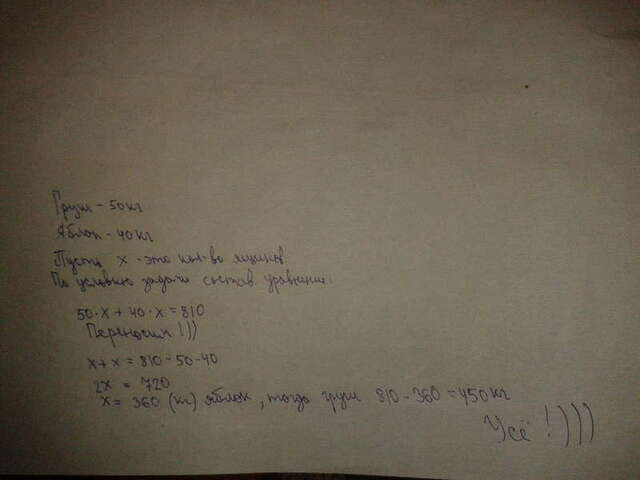 Груш - 50 кг
Яблок - 40 кг
Пусть х - это кол-во ящиков
По условию задачи состав уравнение:
50·х + 40·х = 810
Переносим!))
х+х = 810-50-40
2х = 720
х = 360 (кг) яблок, тогда груш 810-360 = 450 кг
Усё!)))